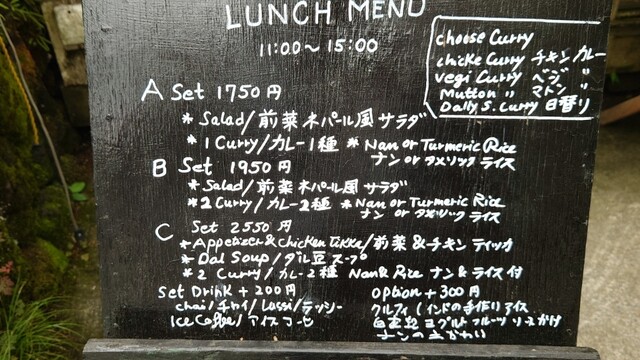 LUNCH MENU
11:00～15:00
choose Curry
chicke Curry チキンカレー
vegi Curry ベジ 〃
Mutton 〃 マトン 〃
Daily S. Curry 日替り
A Set 1750円
* Salad/前菜 ネパール風 サラダ
* 1 Curry/カレー1種 * Nan or Turmeric Rice
ナン or タメリック ライス
B Set 1950円
* Salad/前菜 ネパール風 サラダ
* 2 Curry/カレー2種 * Nan or Turmeric Rice
ナン or タメリック ライス
C Set 2550円
* Appetizer & Chicken tikka/前菜&チキン ティッカ
* Dal Soup/ダル豆スープ
* 2 Curry/カレー2種 Nan & Rice ナン&ライス付
Set Drink + 200円
chai/チャイ/Lassi/ラッシー
Ice Coffee/アイスコーヒ
option + 300円
クルフィ(インドの手作りアイス
自家製 ヨーグルト フルーツ ソースかけ
ナンのおかわり